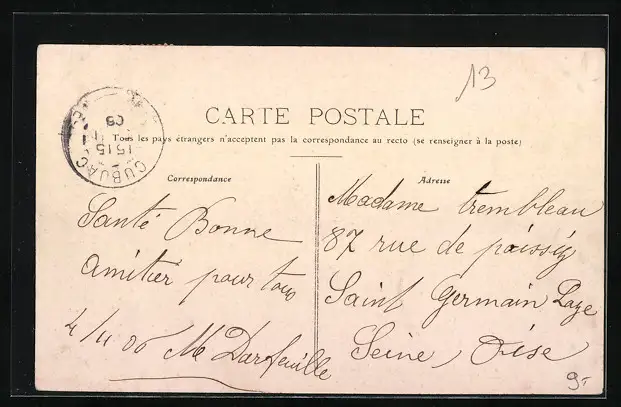 13
CARTE POSTALE
Tous les pays étrangers n'acceptent pas la correspondance au recto (se renseigner à la poste)
Correspondance
Santé Bonne
amitier pour tous
4/4 06 M Darfeuille
Adresse
Madame trembleau
87 rue de poissy
Saint Germain Laye
Seine, Oise
CUBJAC
15 15
06
9-